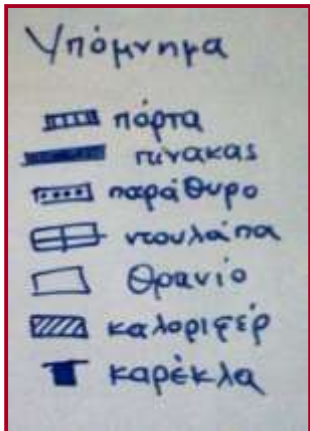 Υπόμνημα
πόρτα
πίνακας
παράθυρο
ντουλάπα
θρανίο
καλοριφέρ
καρέκλα